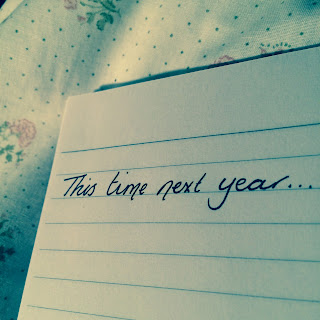 This time next year...